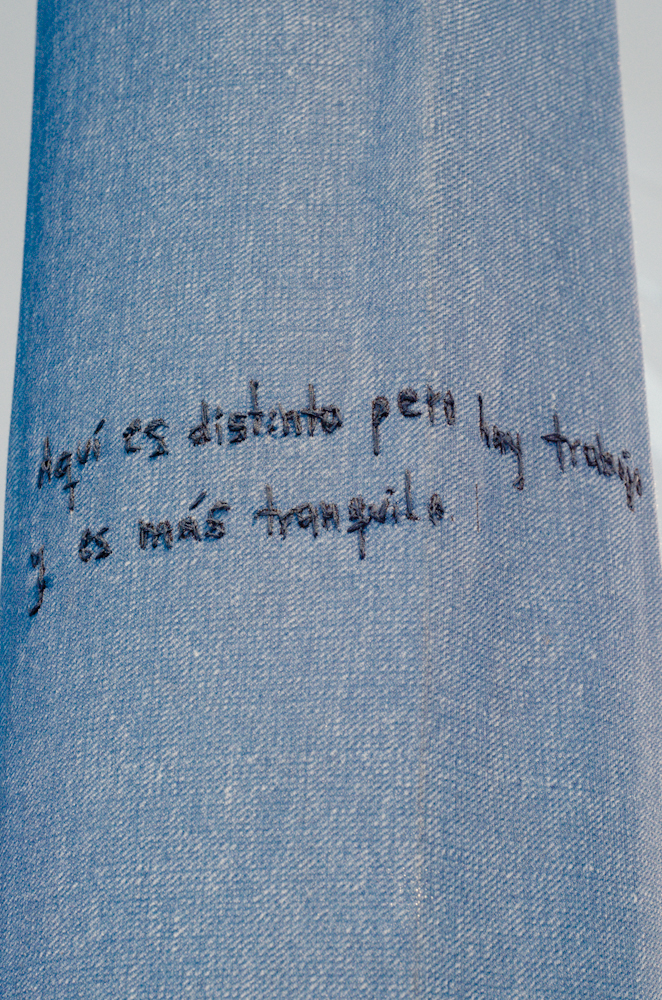 Aquí es distinto pero hay trabajo
y es más tranquilo